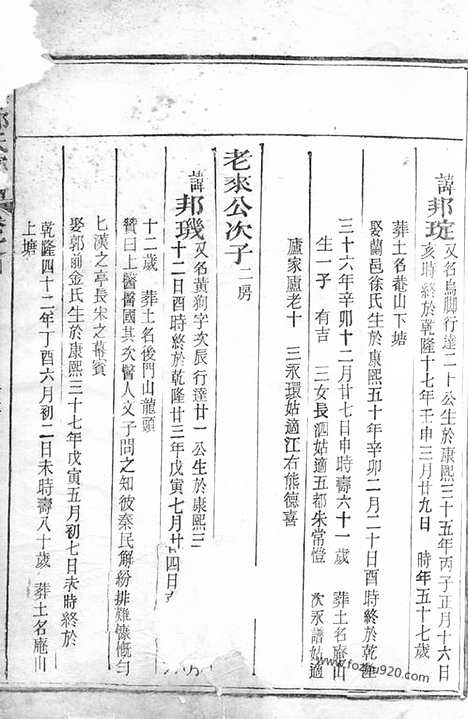 諱邦琔又名烏脚行達二十公生於康熙三十五年丙子正月十六日
亥時終於乾隆十七年壬申三月廿九日 時年五十七歲
葬土名菴山下塘
娶蘭邑徐氏生於康熙五十年辛卯二月二十日酉時終於乾隆
三十六年辛卯十二月廿七日申時壽六十一歲 葬土名庵山
生一子 有吉 三女長泗姑適五都朱常憕 次永譜姑適
廬家廬老十 三永環姑適江右熊德喜
老來公次子二房
諱邦璣又名黃狗字次辰行達廿一公生於康熙三
十二日酉時終於乾隆廿三年戊寅七月廿四日
十二歲 葬土名後門山龍頭
贊曰上醫醫國其次醫人文子問之知彼秦民解紛排難慷慨勻
七漢之亭長宋之幕賓
娶郭前金氏生於康熙三十七年戊寅五月初七日未時終於
乾隆四十二年丁酉六月初二日未時壽八十歲 葬土名庵山
上塘
www.fozhu920.com